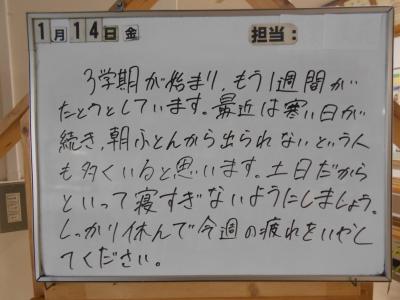 1月14日金 担当：
3学期が始まり、もう1週間が
たとうとしています。最近は寒い日が
続き、朝ふとんから出られないという人
も多くいると思います。土日だから
といって寝すぎないようにしましょう。
しっかり休んで今週の疲れをいやし
てください。